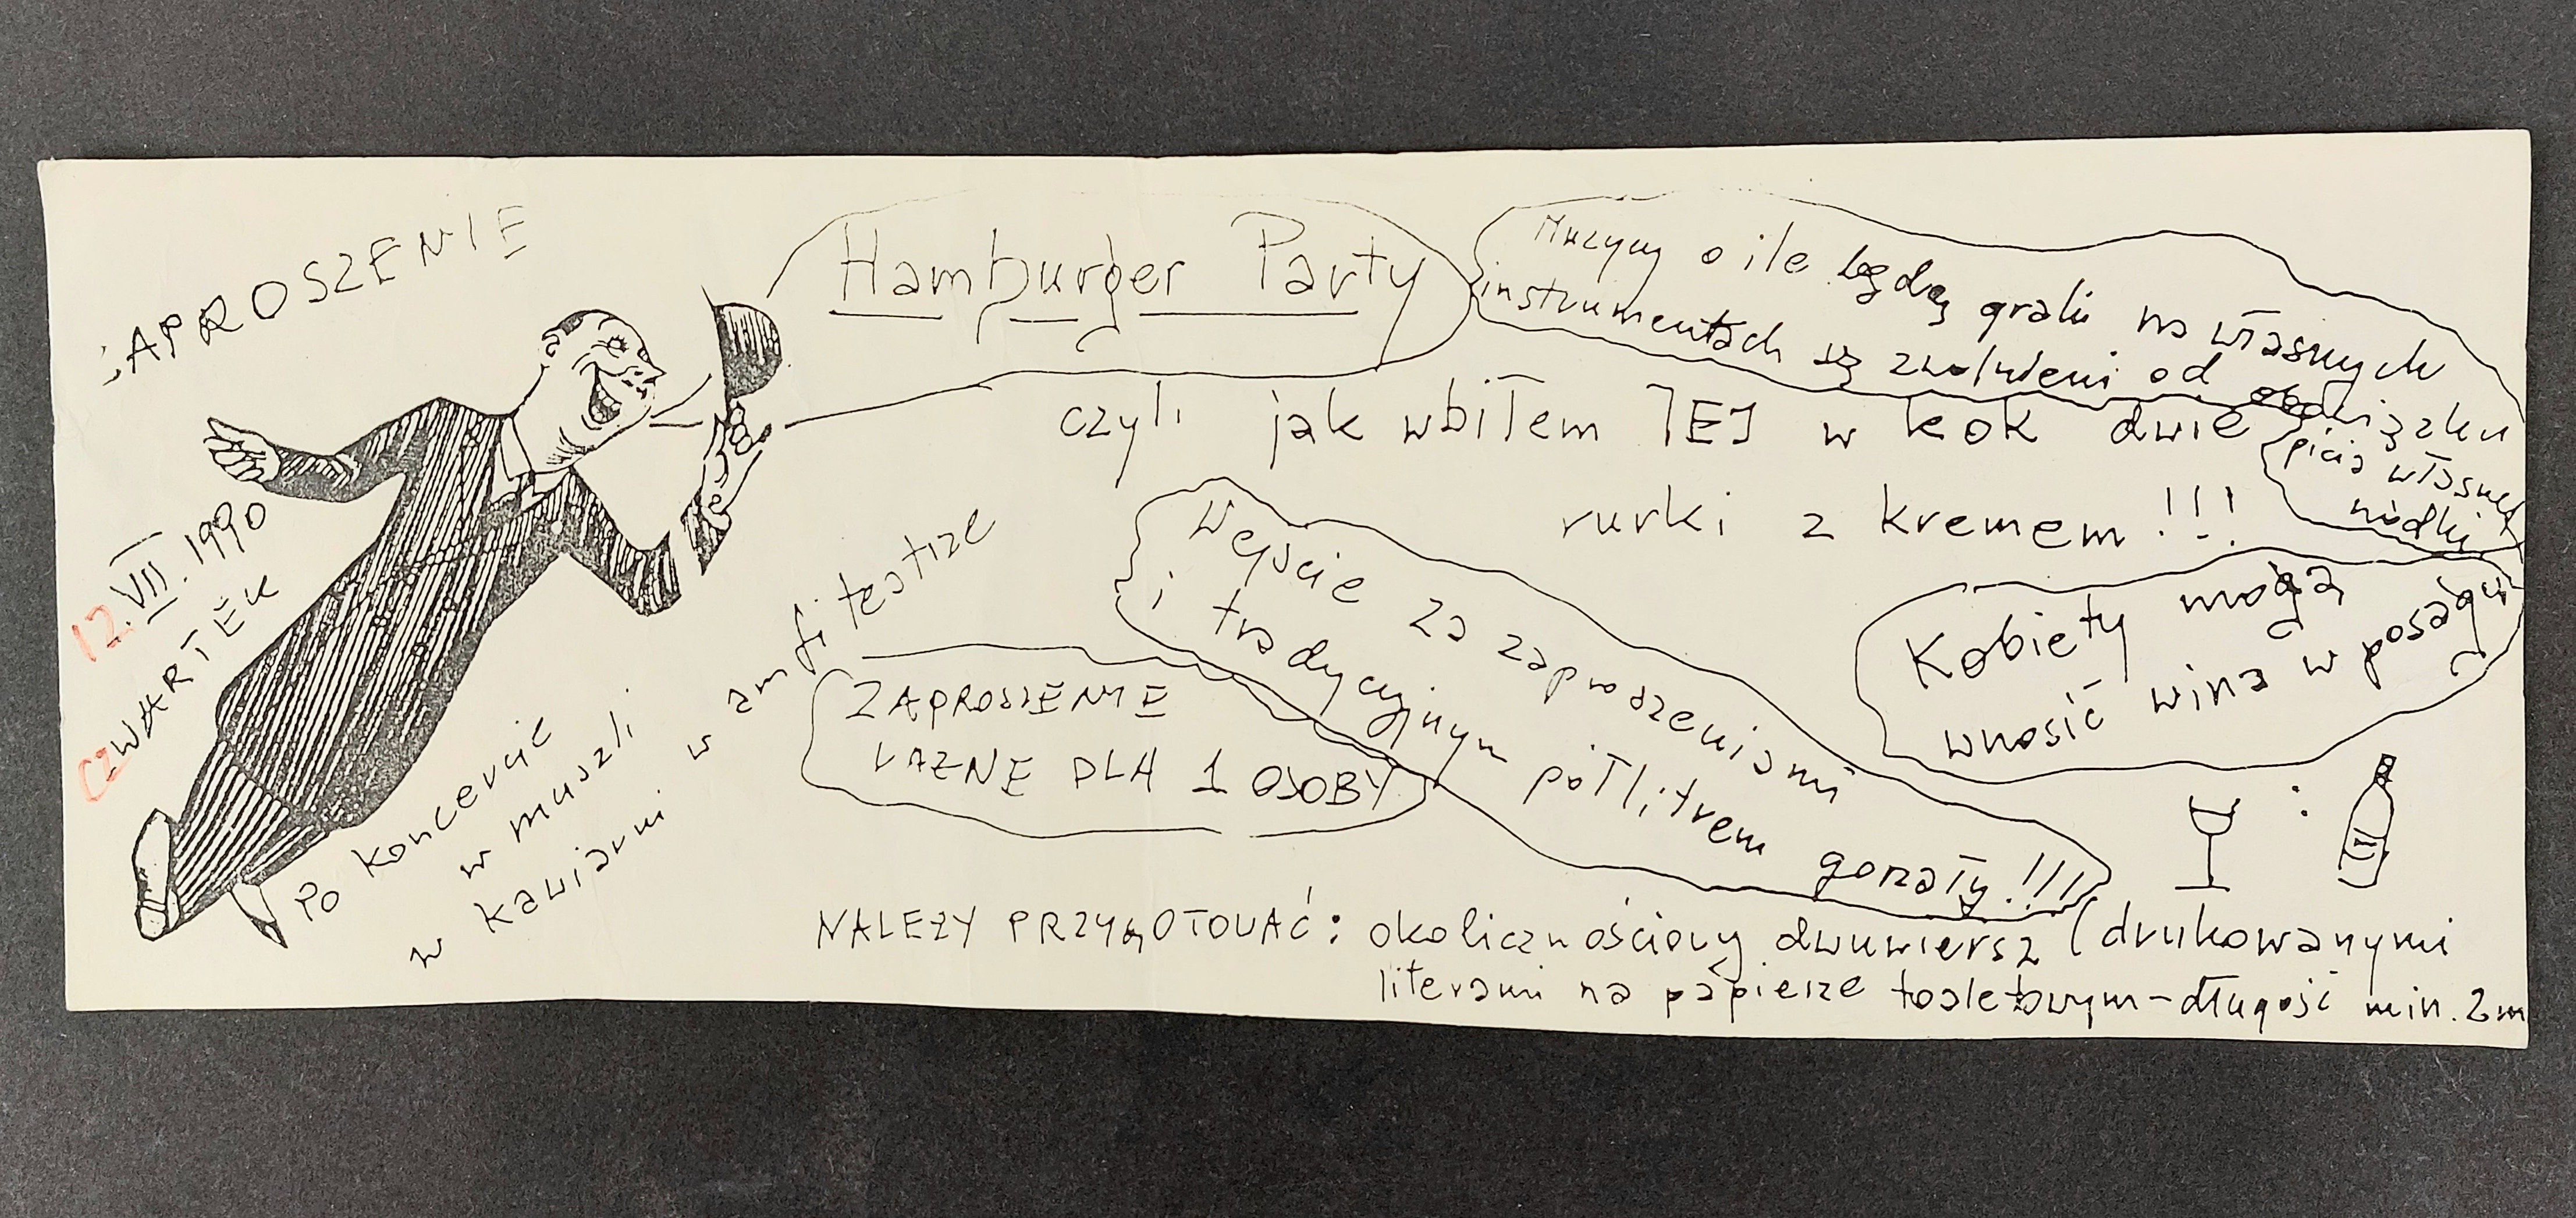 ZAPROSZENIE
12. VII. 1990
CZWARTEK
Po koncercie
w muszli
w kawiarni
w amfiteatrze
Hamburger Party
czyli jak wbiłem JEJ w kok dwie
rurki z kremem!!!
Muzycy o ile będą grali na własnych
instrumentach są zwolnieni od obowiązku
picia własnej
wódki
Wejście za zaproszeniami
i tradycyjnym półlitrem gorzały!!!
Kobiety mogą
wnosić wina w posagu
ZAPROSZENIE
WAŻNE DLA 1 OSOBY
NALEŻY PRZYGOTOWAĆ: okolicznościowy dwuwiersz (drukowanymi
literami na papierze toaletowym - długość min. 2m